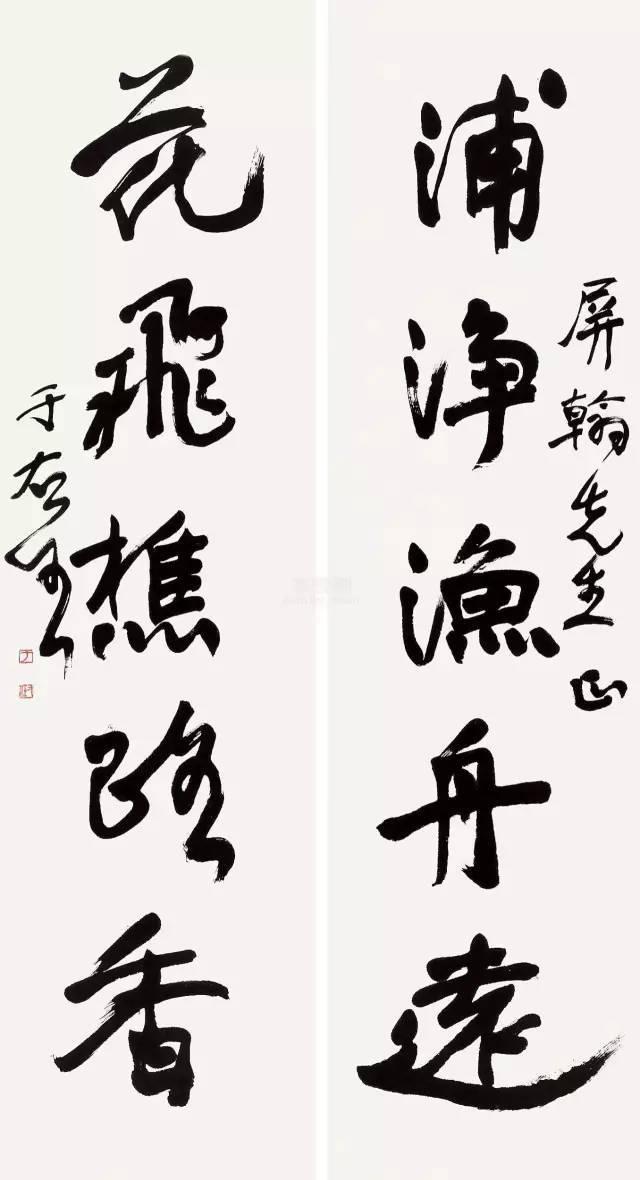 屏翰先生正
浦淨漁舟遠
花飛樵路香
于右任